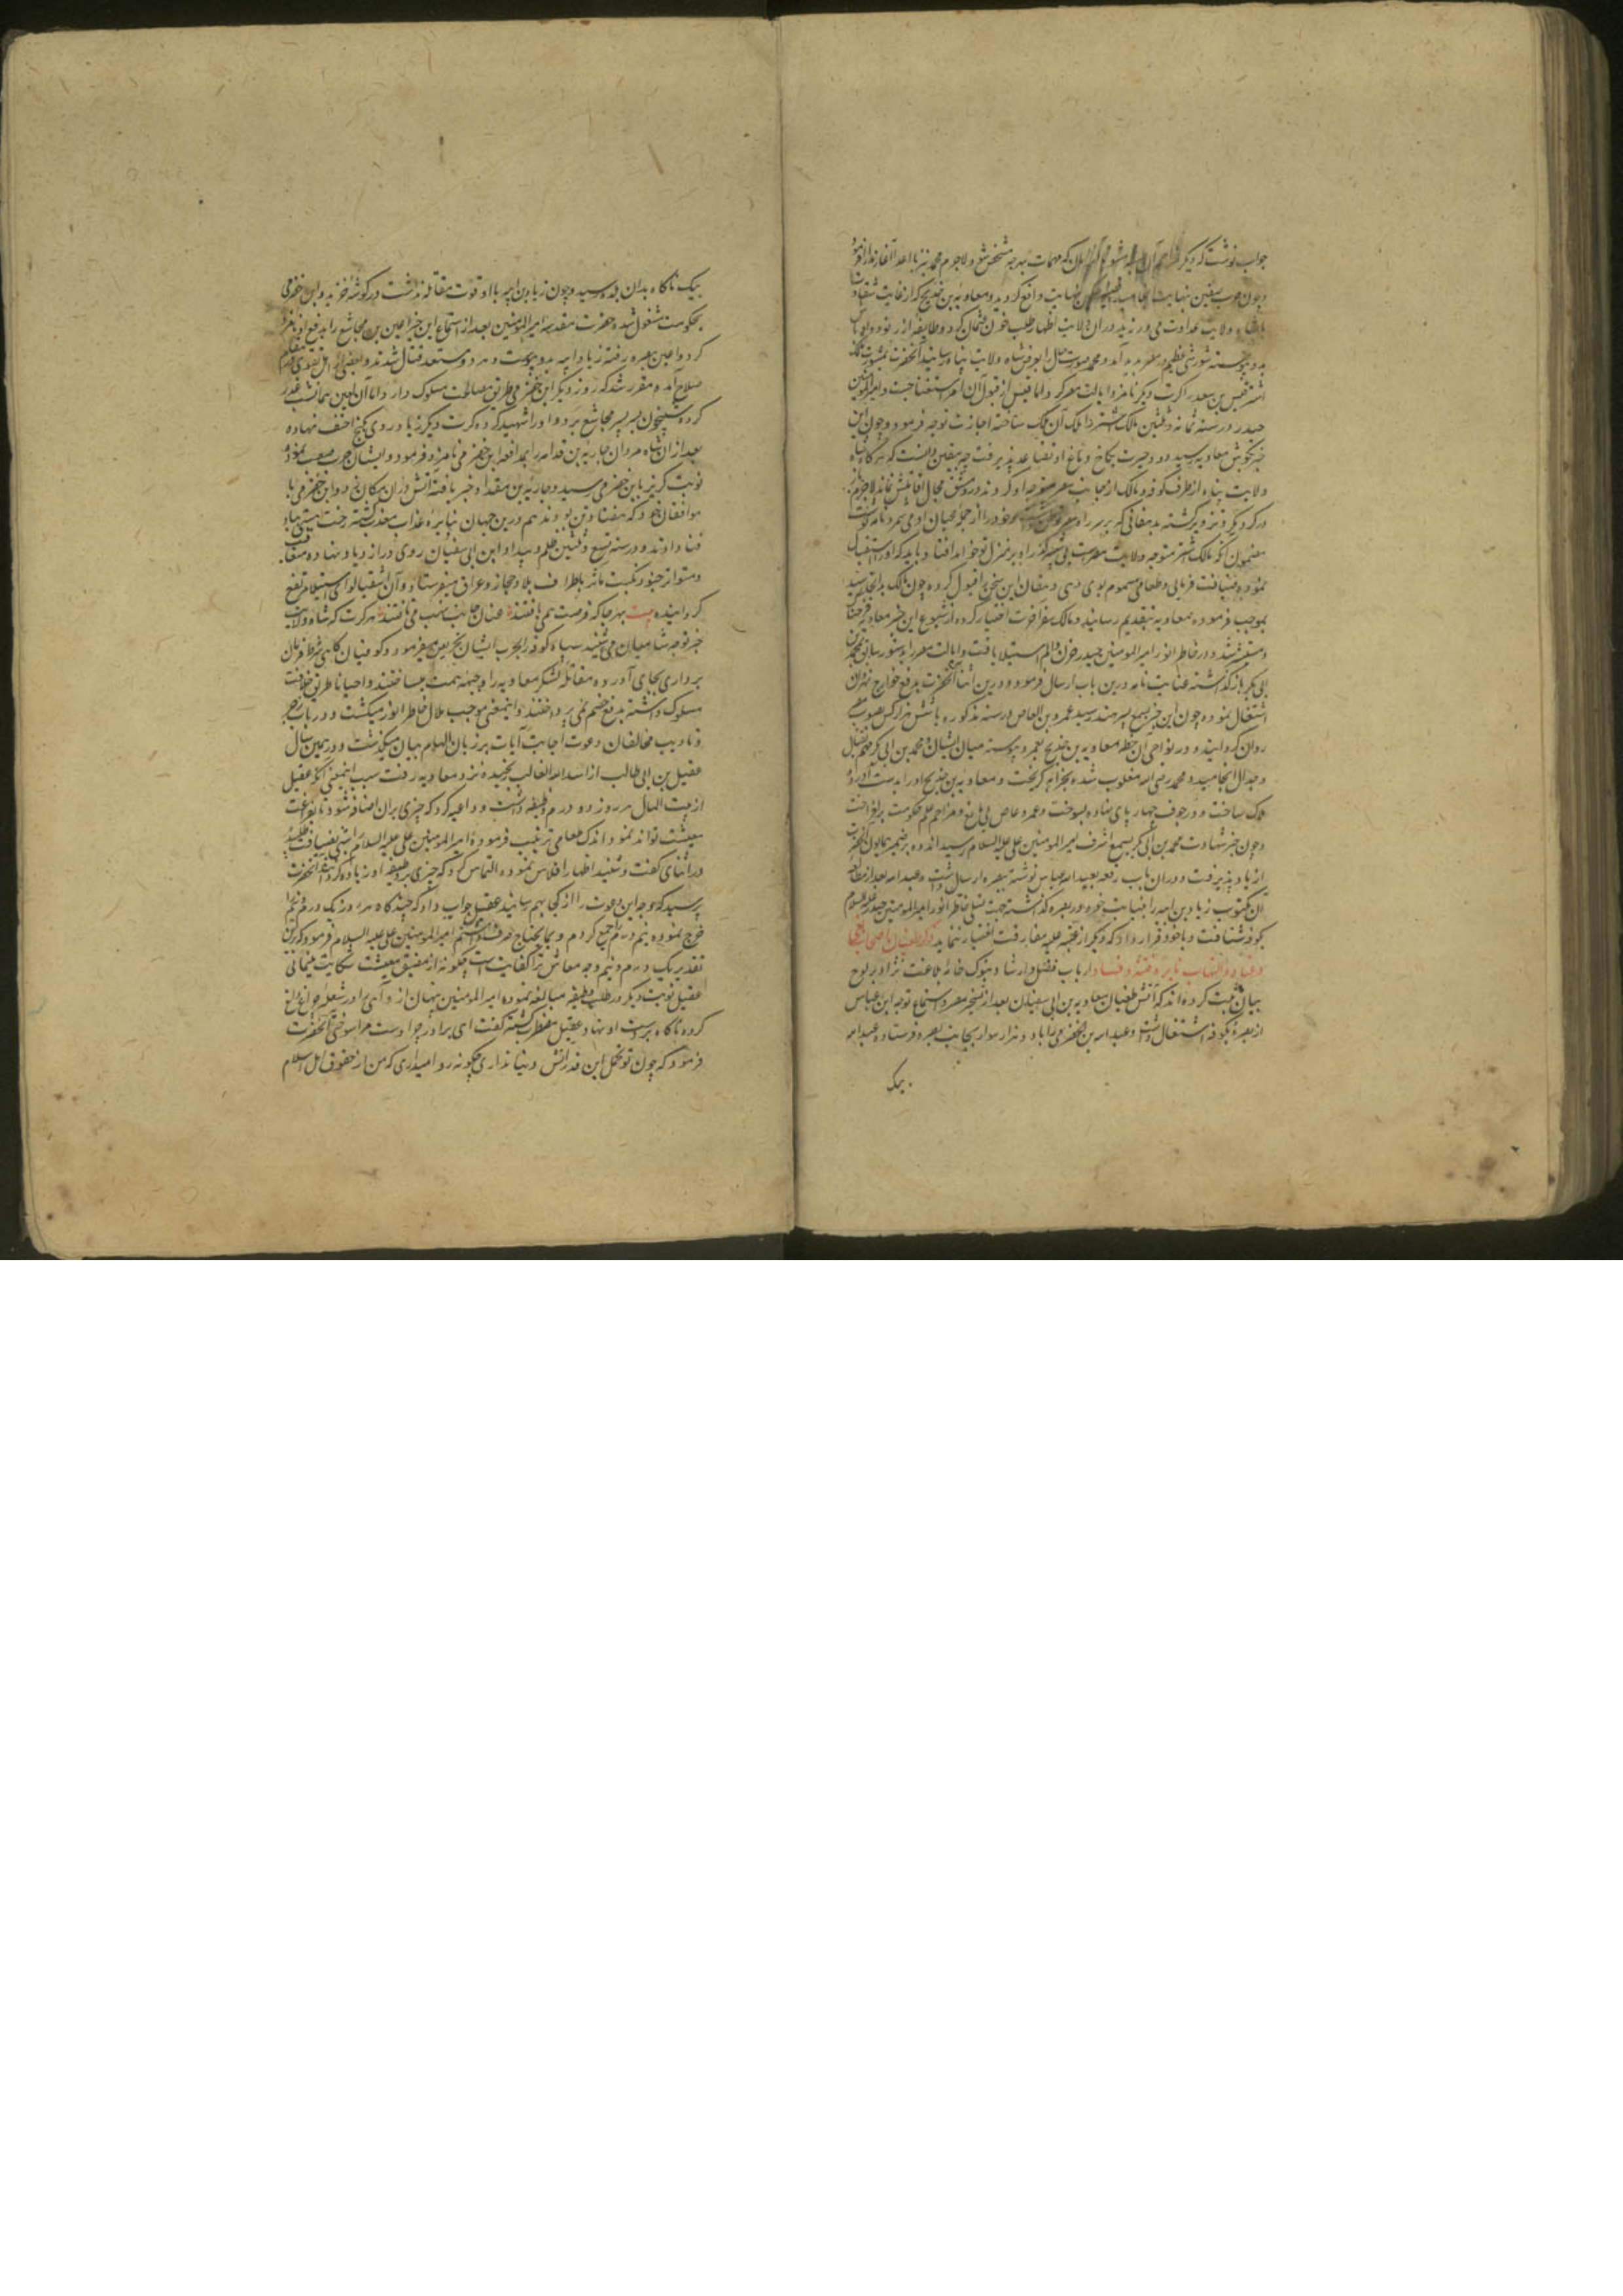 جواب نوشت که دیگر که مهمات بهر چه مشخص شود ولاجرم محمد نیز با اعدا آغاز
و چون حرب صفین بنهایت انجامید و معاویه بن خدیج که از غایت شقاوت
باشاه ولایت عداوت می ورزید در آن ولایت اظهار طلب خون عثمان کرد و طایفه از
بدو پیوسته شورشی عظیم در مصر پدید آمد و محمد صورت حال را بعرض شاه ولایت پناه رسانید آنحضرت
قیس بن سعد را کرت دیگر نامزد ایالت مصر کرد اما قیس از قبول آن امر استغنا جست و امیر المومنین
حیدر در سنه ثمان و ثلثین مالک اشتر را ملک آن ملک ساخته اجازت توجه فرمود و چون این
خبر بگوش معاویه رسید دود حیرت بکاخ دماغ او تصاعد پذیرفت چه بیقین دانست که هرگاه شاه
ولایت پناه از طرف کوفه و مالک از جانب مصر متوجه او گردند در دمشق مجال اقامتش نماند لاجرم
در کرد و بر گشته بدهقانی که بر سر راه مصر خود را از جمله محبان او می شمرد نامه نوشت
مضمون آنکه مالک اشتر متوجه ولایت مصرست بی شبهه گذر او بر منزل تو خواهد افتاد باید که او را استقبال
نموده ضیافت فرمایی و طعامی مسموم بوی دهی دهقان این سخن را قبول کرده چون مالک بدانجا رسید
بموجب فرموده معاویه بتقدیم رسانید و مالک سفر آخرت اختیار کرده از شیوع این خبر معاویه فرحناک
و مستبشر شد و در خاطر انور امیر المومنین حیدر حزن و الم استیلا یافت و ایالت مصر را بدستور سابق بمحمد بن
ابی بکر باز گذاشته عنایت نامه درین باب ارسال فرمود و درین اثنا آنحضرت بدفع خوارج نهروان
اشتغال نموده چون این خبر بسمع پسر هند رسید عمرو بن العاص در سنه مذکوره با شش هزار کس بصوب مصر
روان گردانید و در نواحی آن خطه معاویه بن خدیج بعمرو پیوسته میان ایشان و محمد بن ابی بکر مهم بقتال
و جدال انجامید و محمد رضی الله مغلوب شده بخرابه گریخت و معاویه بن خدیج او را بدست آورده
هلاک ساخت و در جوف چهار پای نهاده بسوخت و عمرو عاص بی مانع و مزاحم علم حکومت برافراخت
و چون خبر شهادت محمد بن ابی بکر بسمع اشرف امیر المومنین علی علیه السلام رسید اندوه بر ضمیر همایون آنحضرت
ازدیاد پذیرفت و در آن باب رقعه بعبد الله عباس نوشته ببصره ارسال داشت و عبد الله بعد از مطالعه
آن مکتوب زیاد بن ابیه را بنیابت خود در بصره گذاشته جهت تسلی خاطر انور امیر المومنین حیدر علیه السلام
بکوفه شتافت و با خود قرار داد که دیگر از عتبه علیه مفارقت اختیار ننماید ذکر اطفال
و عناد و التهاب نایره فتنه و فساد ارباب فضل و ارشاد بنوک خامه بلاغت نژاد بر لوح
بیان ثبت کرده اند که آتش طغیان معاویه بن ابی سفیان بعد از تسخیر مصر و استماع توجه ابن عباس
از بصره بکوفه اشتعال داشت و عبد الله بن الحضرمی را با دو هزار سوار بجانب بصره فرستاده عبد الله
بیک
بیک ناگاه بدان بلده رسید و چون زیاد بن ابیه با او قوت مقاتله نداشت در گوشه خزیده و ابن حضرمی
بحکومت مشغول شد و حضرت مقدسه امیر المومنین بعد از استماع این خبر اعین بن مجاشع را بدفع او نامزد
کرد و اعین ببصره رفته زیاد ابیه بدو پیوست و هر دو مستعد قتال شدند و بعضی از اهل بصره در مقام
صلاح آمده مقرر شد که روز دیگر ابن حضرمی طریق مصالحت مسلوک دارد اما آن لعین همان شب غدر
کرده شبیخون بر سر مجاشع برد و او را شهید کرده کرت دیگر زیاد روی بکنج اختفا نهاده
بعد از آن شاه مردان جاریه بن قدامه را بمدافعه ابن حضرمی نامزد فرمود و ایشان حرب صعب نموده
نوبت گریز بابن حضرمی رسید و جاریه بن مقداد خبر یافته آتش در آن مکان زد و ابن حضرمی با
موافقان خود که هفتاد تن بودند هم درین جهان بنایره عذاب معذب گشته رخت هستی بباد
فنا دادند و در سنه تسع و ثلثین ظلم و بیداد ابن ابی سفیان روی در ازدیاد نهاده متعاقب
و متواتر جنود نکبت ماثر باطراف بلاد حجاز و عراق میفرستاد و آن اشقیا لوای استیلا مرتفع
گردانیده بیت بهر جا که فرصت همی یافتند عنان جانب نهب می تافتند هر کرت که شاه ولایت
خبر توجه شامیان می شنید سپاه کوفه را بحرب ایشان تحریص میفرمود و کوفیان گاهی شرط فرمان
برداری بجای آورده مقاتله لشکر معاویه را وجهه همت میساختند و احیانا طریق مخالفت
مسلوک داشته بدفع خصم نمی پرداختند و اینمعنی موجب ملال خاطر انور میگشت و در باب زجر
و تادیب مخالفان دعوت اجابت آیات بر زبان الهام بیان میگذشت و در همین سال
عقیل بن ابی طالب از اسد الله الغالب رنجیده نزد معاویه رفت سبب اینمعنی آنکه عقیل
از بیت المال هر روز دو درم وظیفه داشت و داعیه کرد که چیزی بران اضافه شود تا بفراغت
معیشت تواند نمود اندک طعامی ترتیب فرموده امیر المومنین علی علیه السلام را شبی بضیافت طلبید
در اثنای گفت و شنید اظهار افلاس نموده التماس کرد که چیزی بر وظیفه او زیاده گردد آنحضرت
پرسید که وجه این دعوت را از کجا بهم رسانید عقیل جواب داد که چند گاه هر روز یک درم و نیم
خرج نموده نیم درم جمع کردم و بما یحتاج صرف داشتم امیر المومنین علی علیه السلام فرمود که برین
تقدیر یک درم و نیم وجه معاش ترا کفایت است چگونه از مضیق معیشت شکایت مینمائی
عقیل نوبت دیگر در طلب وظیفه مبالغه نموده امیر المومنین پنهان از و آهنی را در شعله چراغ داغ
کرده ناگاه بر دست او نهاد و عقیل مضطرب گشته گفت ای برادر چرا دست مرا سوختی آنحضرت
فرمود که چون تو تحمل این قدر آتش دنیا نداری چگونه روا میداری که من از حقوق اهل اسلام